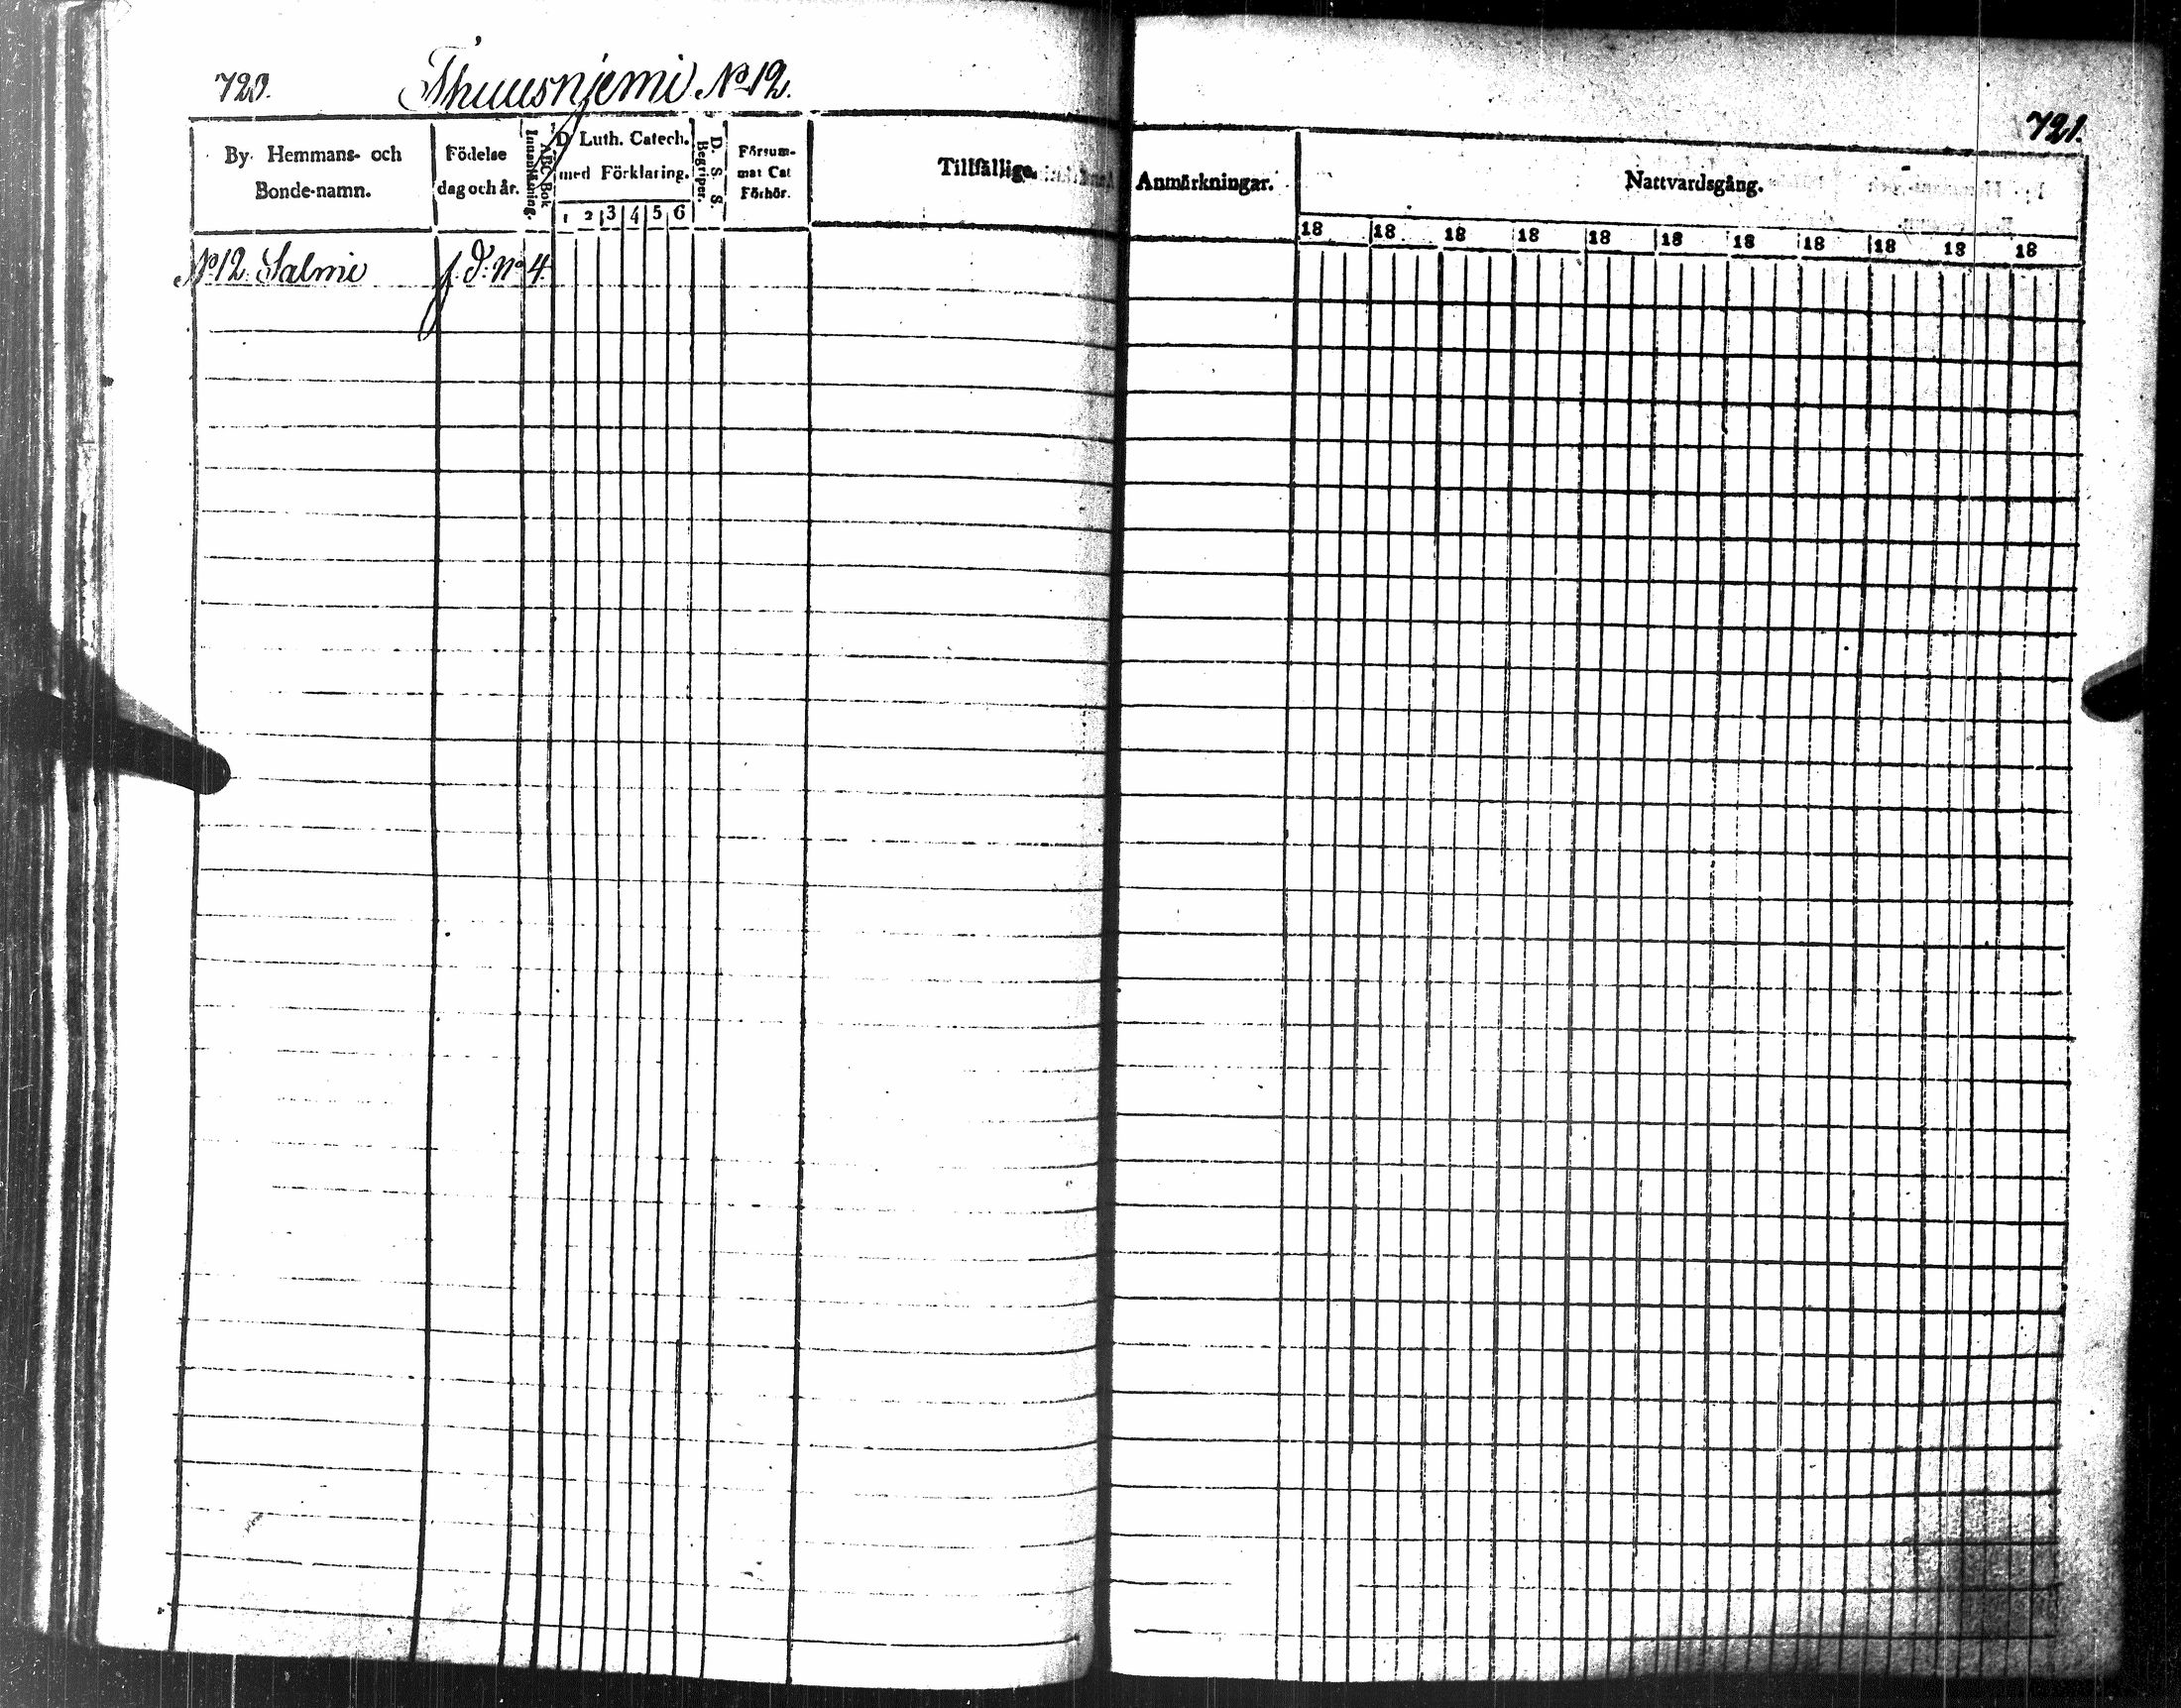 720. Thuusnjemi No 12.
721.
By. Hemmans- och
Bonde-namn.
Födelse
dag och år.
Innanläsning.
ABC Bok
D. Luth. Catech.
med Förklaring.
1 2 3 4 5 6
D. S. S.
Begriper.
Försum-
mat Cat
Förhör.
Tillfällige
Anmärkningar.
Nattvardsgång.
18 18 18 18 18 18 18 18 18 18 18
No 12 Salmi f. d: No 4